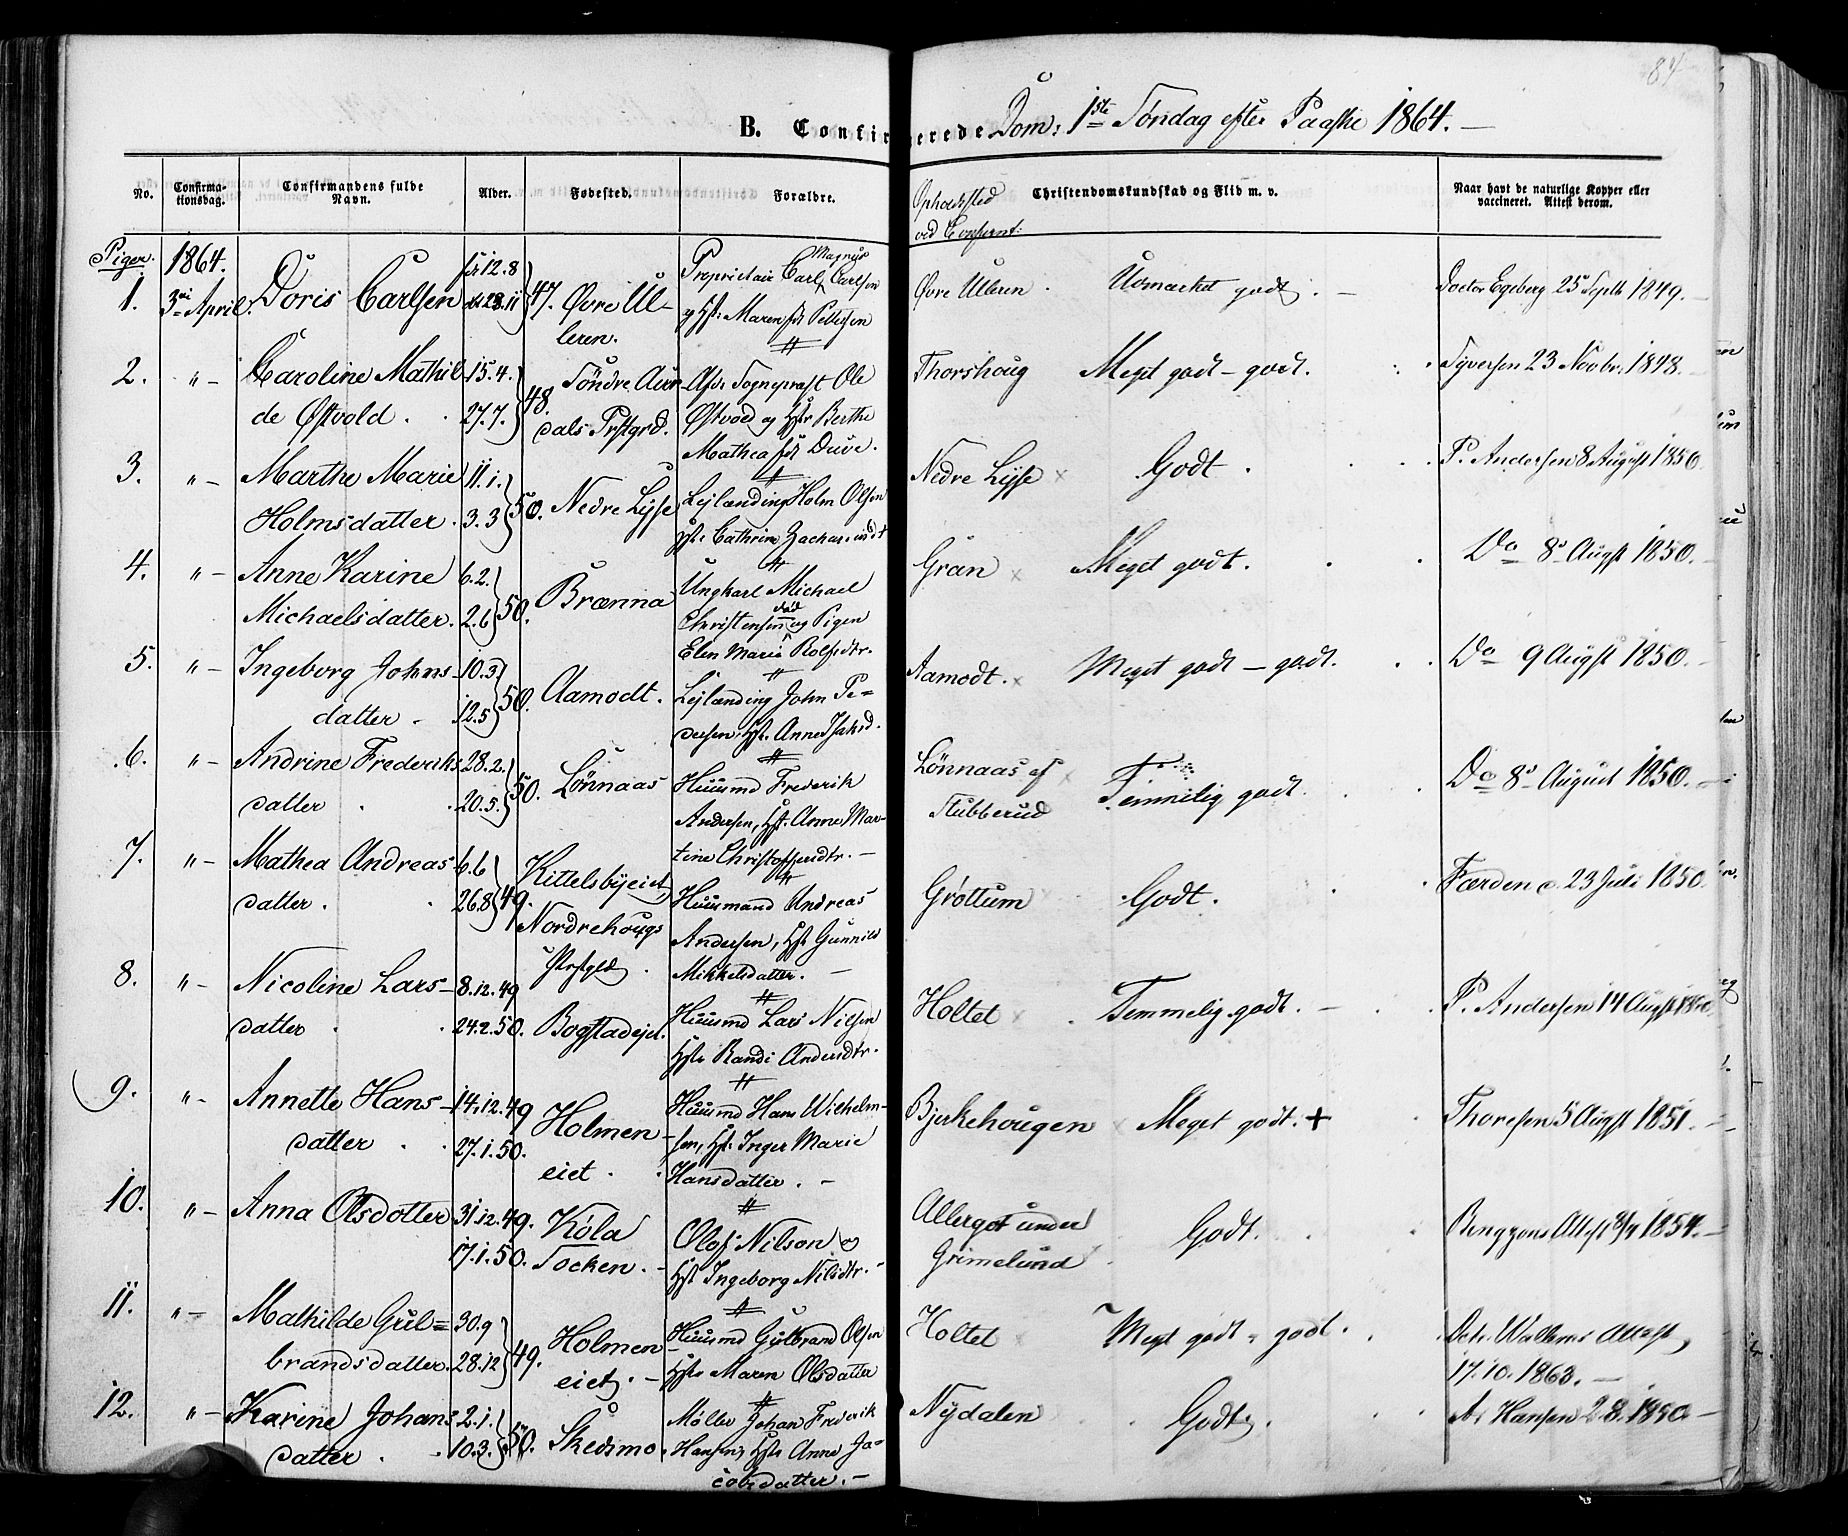 84
B. Confirmerede Dom: 1ste Søndag efter Paaske 1864. —
No. Confirma-tionsdag. Confirmandens fulde Navn. Alder. Fødested. Forældre. Opholdsted ved Confirmt: Christendomskundskab og Flid m. v. Naar havt de naturlige Kopper eller vaccineret. Attest derom.
Piger. 1864.
1. 3die April. Doris Carlsen 12.8 28.11 47. Øvre Ul-
leren.
Proprietair Carl Magnus Carlsen
og Hst: Maren f. Pettersen
Øvre Ulleren. Udmærket godt. — Doctor Egeberg 25 Septb 1849. —
2. " — Caroline Mathil- 15.4. 48. Søndre Aur-
de Østvold. 27.7. dals Prstgrd.
Afd: Sognepræst Ole
Østvold og Hstr Berthe
Mathea f. Duve.
Thorshoug Meget godt — godt. Syversen 23 Novbr. 1848. —
3. " — Marthe Marie 11.1. 50. Nedre Lysse
Holmsdatter. 3.3
Leilænding Holm Olsen
Hst: Cathrine Zachariasdt
Nedre Lysse × Godt. P. Andersen 8 August 1850
4. " — Anne Karine 6.2. 50. Brænna
Michaelsdatter. 2.6
Ungkarl Michael
Christensen død og Pigen
Elen Marie Rolfsdtr.
Gran × Meget godt. Do 8de Augst 1850.
5. " — Ingeborg Johns- 10.3 50. Aamodt.
datter — 12.5
Lejlænding John Pe-
dersen, Hst. Anne Isaksd.
Aamodt. × Meget godt — godt. Do 9 Augst 1850. —
6. " — Andrine Frederiks- 28.2. 50. Lønnaas
datter. 20.5.
Huusmd Frederik
Andersen, Hst. Anne Mar-
tine Christoffersdtr. —
Lønnaas af ×
Stubberud
Temmelig godt. Do 8de August 1850. —
7. " — Mathea Andreas- 6.6 49. Kittelsbyeiet,
datter. 26.8 Nordrehougs
Prstgld.
Huusmand Andreas
Andersen, Hst Gunnild
Mikkelsdatter. —
Grøttum Godt. Færden d. 23 Juli 1850.
8. " — Nicoline Lars- 8.12.49
datter. 24.2.50. Bogstadejet.
Huusmd Lars Nilsen
Hst: Randi Andersdtr.
Holtet × Temmelig godt. — P. Andersen 14 Augst 1850.
9. " — Annette Hans- 14.12.49 Holmen-
datter. 27.1.50. eiet.
Huusmd Hans Wilhelm-
sen, Hst: Inger Marie
Hansdatter. —
Bjerkehougen × Meget godt. + Thoresen 5 Augst 1851. —
10. " — Anna Olsdotter 31.12.49. Köla
17.1.50. Socken. —
Olof Nilson og
Hst Ingeborg Nilsdtr. —
Allergot under
Grimelund ×
Godt. Bengzons Attest 8/4 1854. —
11. " — Mathilde Gul= 30.9 49. Holmen-
brandsdatter. 28.12 eiet. —
Huusmd Gulbrand Olsen
Hst: Maren Olsdatter
Holtet × Meget godt - godt. Dctr. Wallems Attest,
17.10.1863. —
12. " — Karine Johans- 2.1. 50. Skedsmo.
datter. 10.3.
Møller Johan Frederik
Hansen, Hst: Anne Ja-
cobsdatter. —
Nydalen Godt. A. Hansen 2.8.1850 —